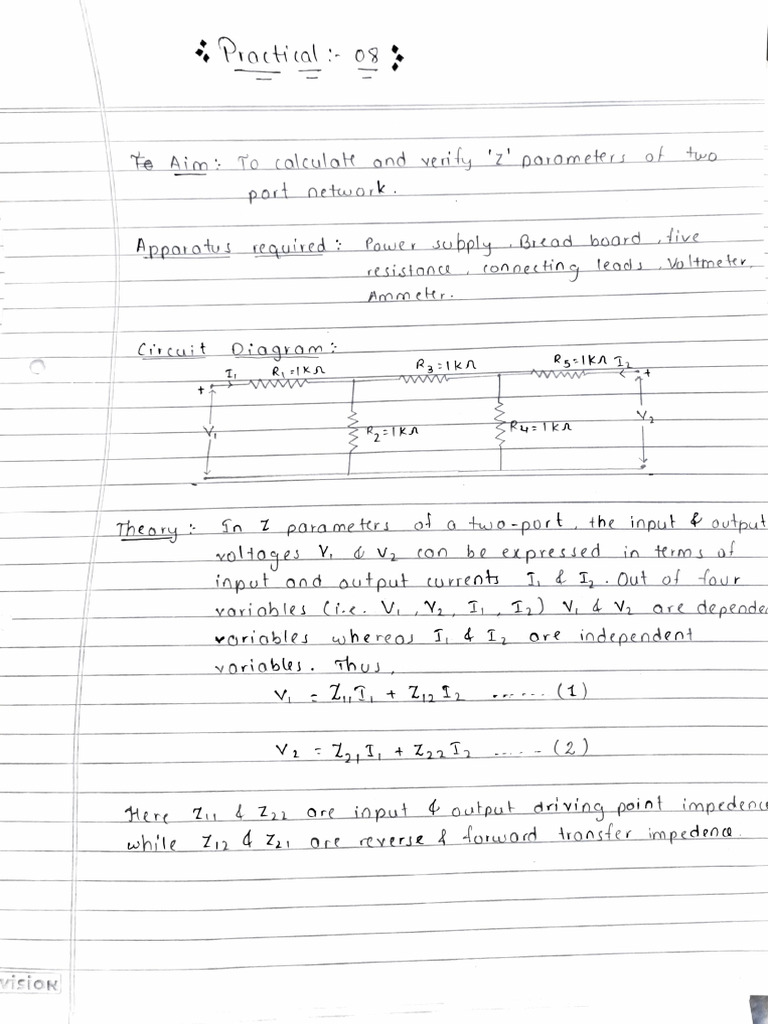 Practical :- 08
Te Aim : To calculate and verify 'Z' parameters of two
port network.
Apparatus required : Power supply, Bread board, five
resistance, connecting leads, Voltmeter,
Ammeter.
Circuit Diagram :
+ I₁ R₁=1KΩ R₃=1KΩ R₅=1KΩ I₂ +
V₁ R₂=1KΩ R₄=1KΩ V₂
Theory : In Z parameters of a two-port, the input & output
voltages V₁ & V₂ can be expressed in terms of
input and output currents I₁ & I₂. Out of four
variables (i.e. V₁, V₂, I₁, I₂) V₁ & V₂ are depende
variables whereas I₁ & I₂ are independent
variables. Thus,
V₁ = Z₁₁I₁ + Z₁₂I₂ ...... (1)
V₂ = Z₂₁I₁ + Z₂₂I₂ ..... - (2)
Here Z₁₁ & Z₂₂ are input & output driving point impedenc
while Z₁₂ & Z₂₁ are reverse & forward transfer impedence.
VISION